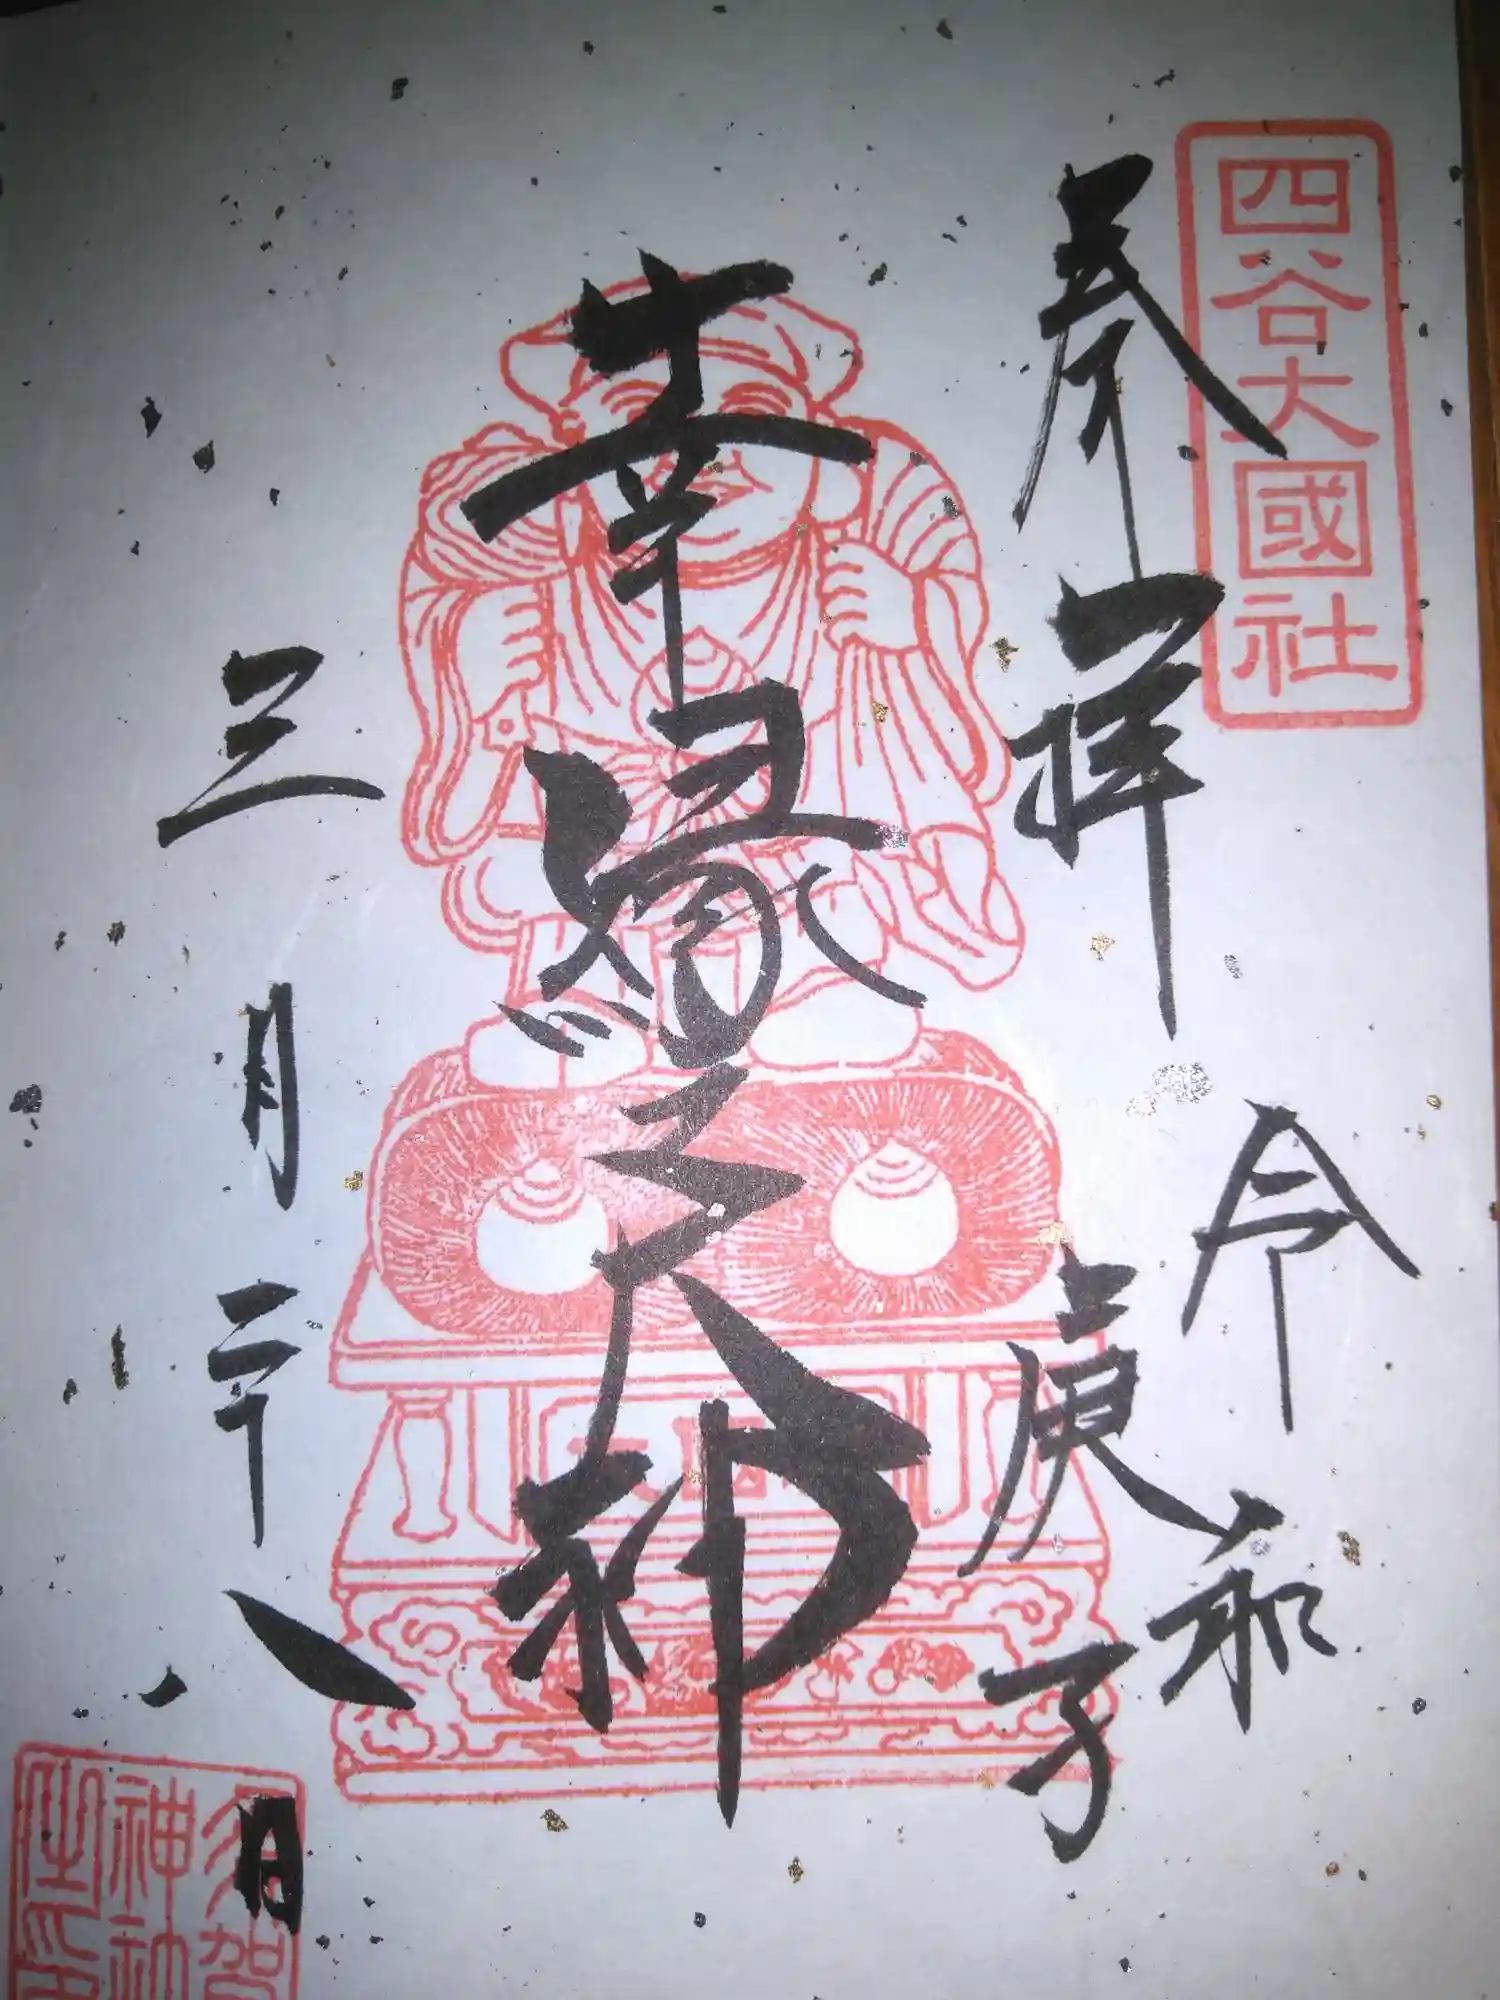 四谷大國社
奉拝
令和
庚子
幸縁之大神
三月二十八日
須賀
神社
之印